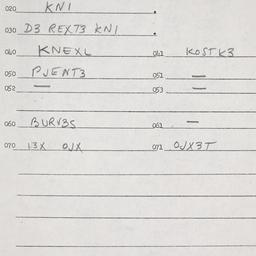 020 KNI .
030 D3 REXT3 KNI .
040 KNEXL 041 KOSTK3
050 PJENT3 051 —
052 — 053 —
060 BURV3S 061 —
070 13X OJX 071 OJX3T